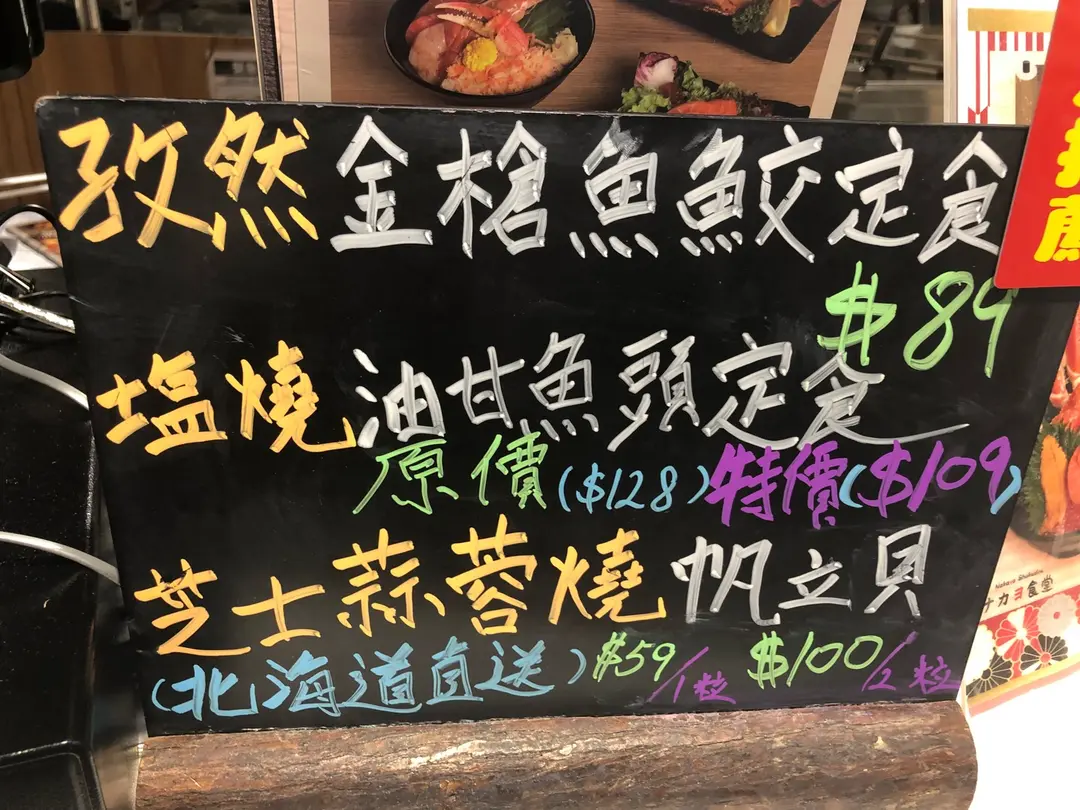 孜然金槍魚鮫定食
$89
塩燒油甘魚頭定食
原價($128)特價($109)
芝士蒜蓉燒帆立貝
(北海道直送)$59/1粒 $100/2粒
ナカヨ食堂